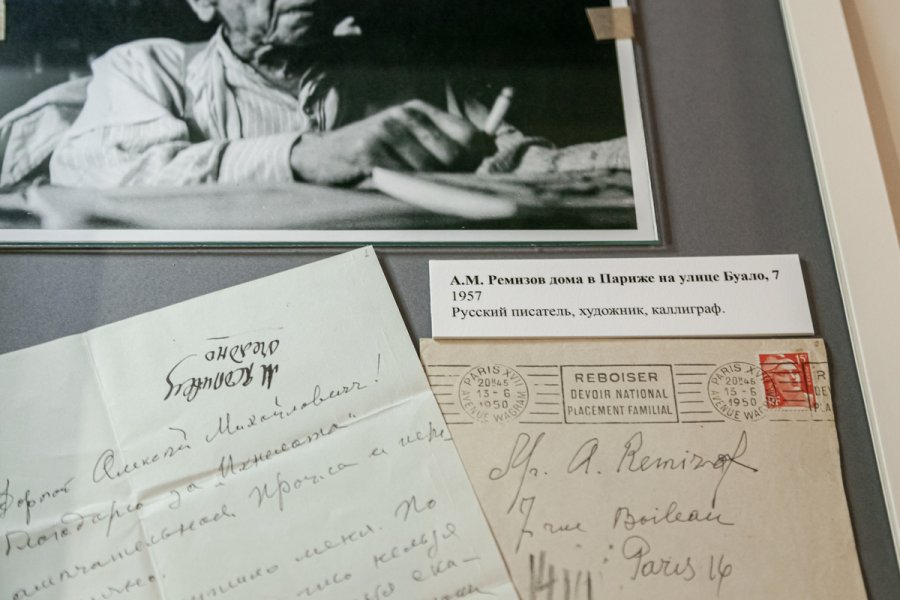 А.М. Ремизов дома в Париже на улице Буало, 7
1957
Русский писатель, художник, каллиграф.
PARIS XVII
20H45
13-6
1950
AVENUE WAGRAM
REBOISER
DEVOIR NATIONAL
PLACEMENT FAMILIAL
PARIS XVII
20H45
13-6
1950
AVENUE WAGRAM
15F
RF
A. Remizof
7 rue Boileau
Paris 16
Дорогой Алексей Михайлович!
Благодарю за
Прочла и пере
меня. По
нельзя
ска-